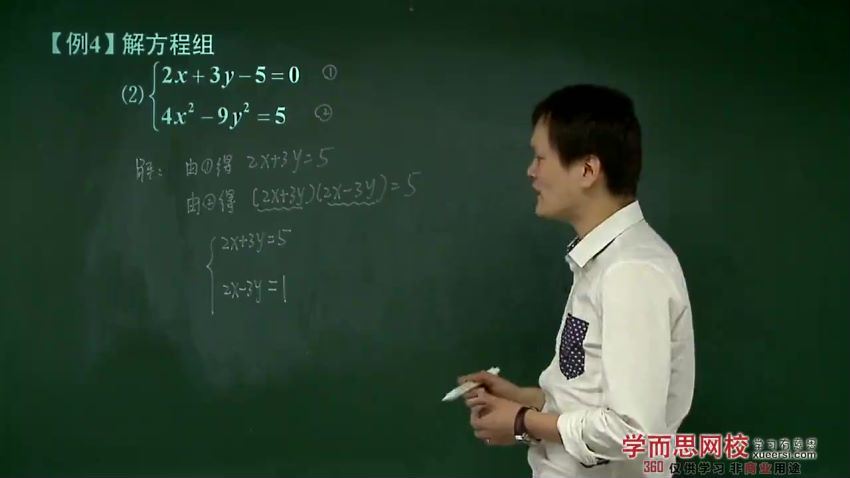 【例4】解方程组
(2) { 2x+3y-5=0 ①
4x²-9y²=5 ②
解：由①得 2x+3y=5
由②得 (2x+3y)(2x-3y)=5
{ 2x+3y=5
2x-3y=1
学而思网校 学习有意思
xueersi.com
360 仅供学习 非商业用途